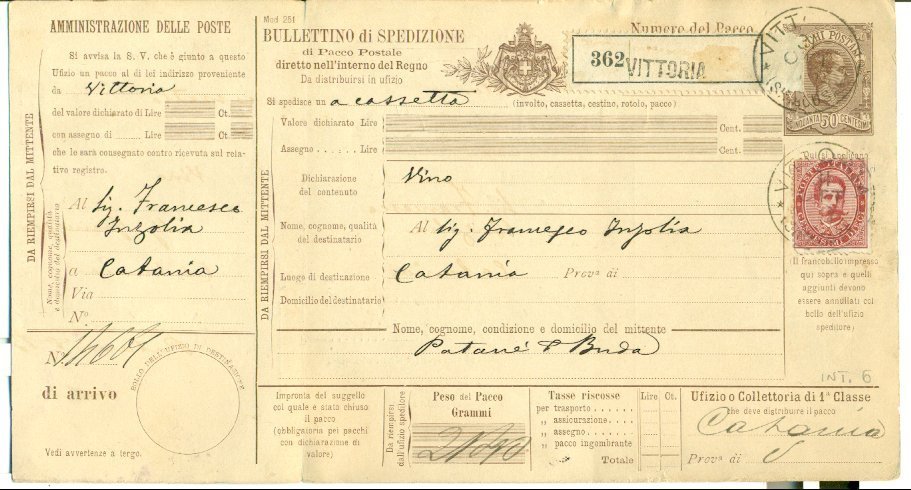 AMMINISTRAZIONE DELLE POSTE
Si avvisa la S. V. che è giunto a questo
Ufizio un pacco al di lei indirizzo proveniente
da Vittoria
del valore dichiarato di Lire Ct.
con assegno di Lire Ct.
che le sarà consegnato contro ricevuta sul rela-
tivo registro.
DA RIEMPIRSI DAL MITTENTE
Nome, cognome, qualità
e domicilio del destinatario
Al Sig. Francesco
Inzolia
a Catania
Via
No
No
di arrivo
BOLLO DELL'UFIZIO DI DESTINAZIONE
Vedi avvertenze a tergo.
Mod 251
BULLETTINO di SPEDIZIONE
di Pacco Postale
diretto nell'interno del Regno
Da distribuirsi in ufizio
Numero del Pacco
362 VITTORIA
Si spedisce un a cassetta (involto, cassetta, cestino, rotolo, pacco)
DA RIEMPIRSI DAL MITTENTE
Valore dichiarato Lire Cent.
Assegno ...... Lire Cent.
Dichiarazione
del contenuto
Vino
Nome, cognome, qualità
del destinatario
Al Sig. Francesco Inzolia
Luogo di destinazione Catania Prova di
Domicilio del destinatario
Nome, cognome, condizione e domicilio del mittente
Patanè & Buda
50 CENTESIMI
(Il francobollo impresso
qui sopra e quelli
aggiunti devono
essere annullati col
bollo dell'ufizio
speditore)
INT. 6
Impronta del suggello
col quale è stato chiuso
il pacco
(obbligatoria pei pacchi
con dichiarazione di
valore)
Da riempirsi
dall'ufizio speditore
Peso del Pacco
Grammi
Tasse riscosse Lire Ct.
per trasporto
„ assicurazione
„ assegno
„ pacco ingombrante
Totale
Ufizio o Collettoria di 1a Classe
che deve distribuire il pacco
Catania
Prova di